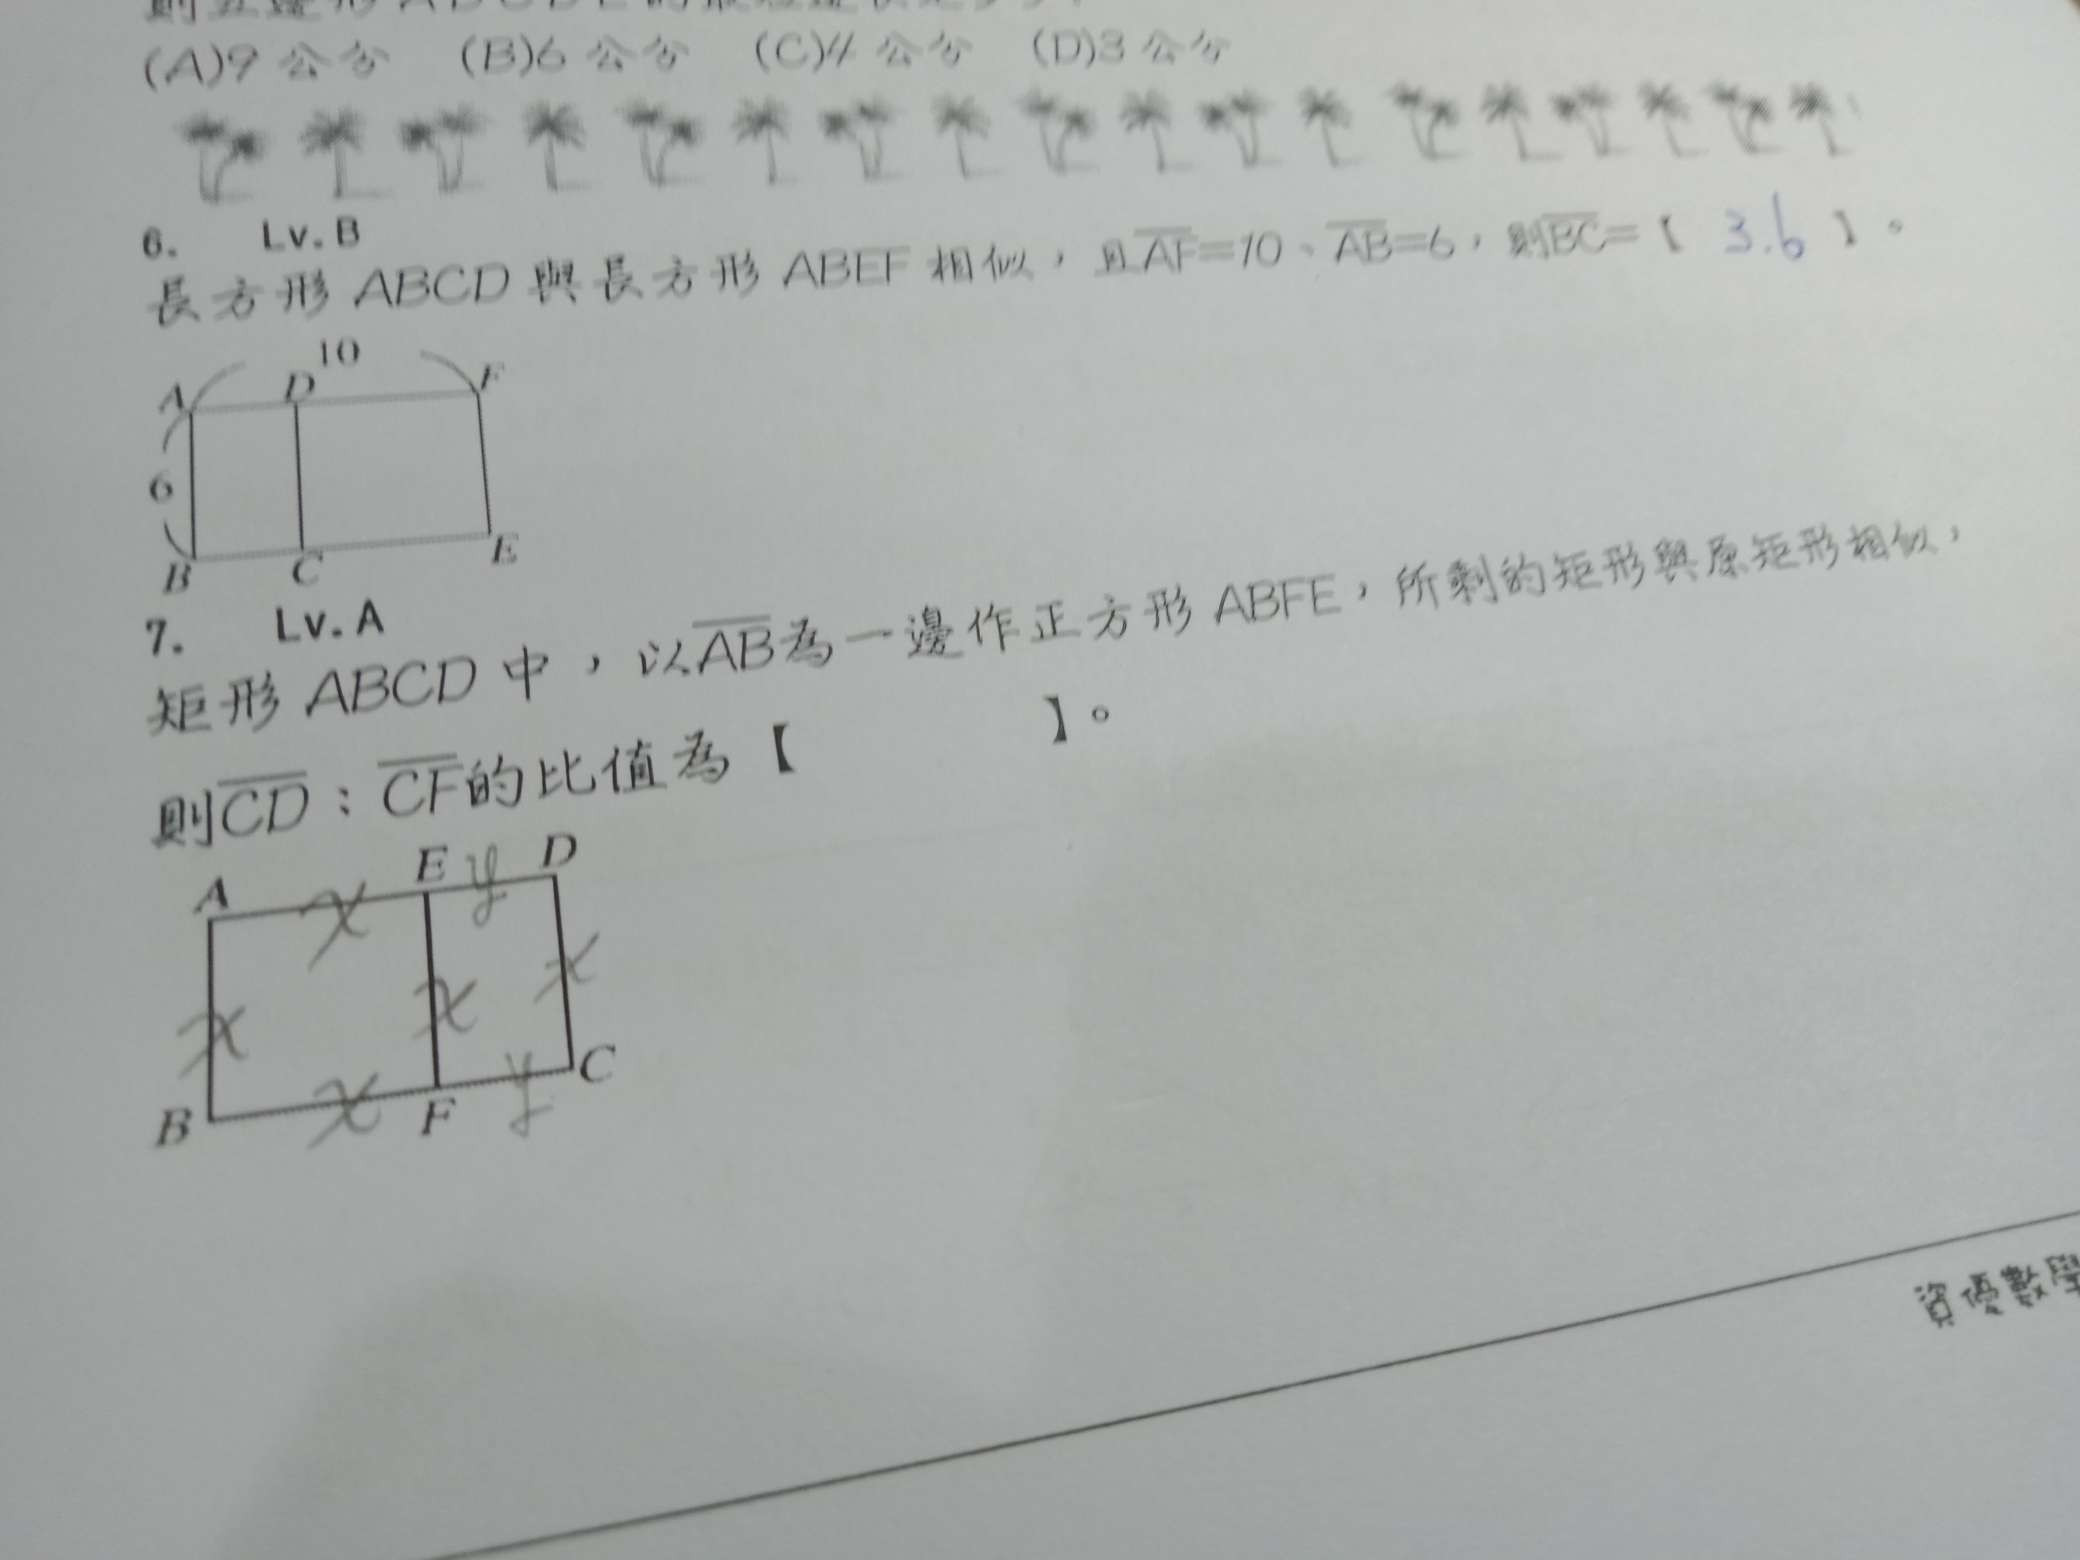 (A)9 公分 (B)6 公分 (C)4 公分 (D)3 公分
6. Lv.B
長方形 ABCD 與長方形 ABEF 相似，且AF=10、AB=6，則BC=【 3.6 】。
10
A D F
6
B C E
7. Lv.A
矩形 ABCD 中，以AB為一邊作正方形 ABFE，所剩的矩形與原矩形相似，
則CD：CF的比值為【 】。
A E y D
x
x x x
B x F y C
資優數學